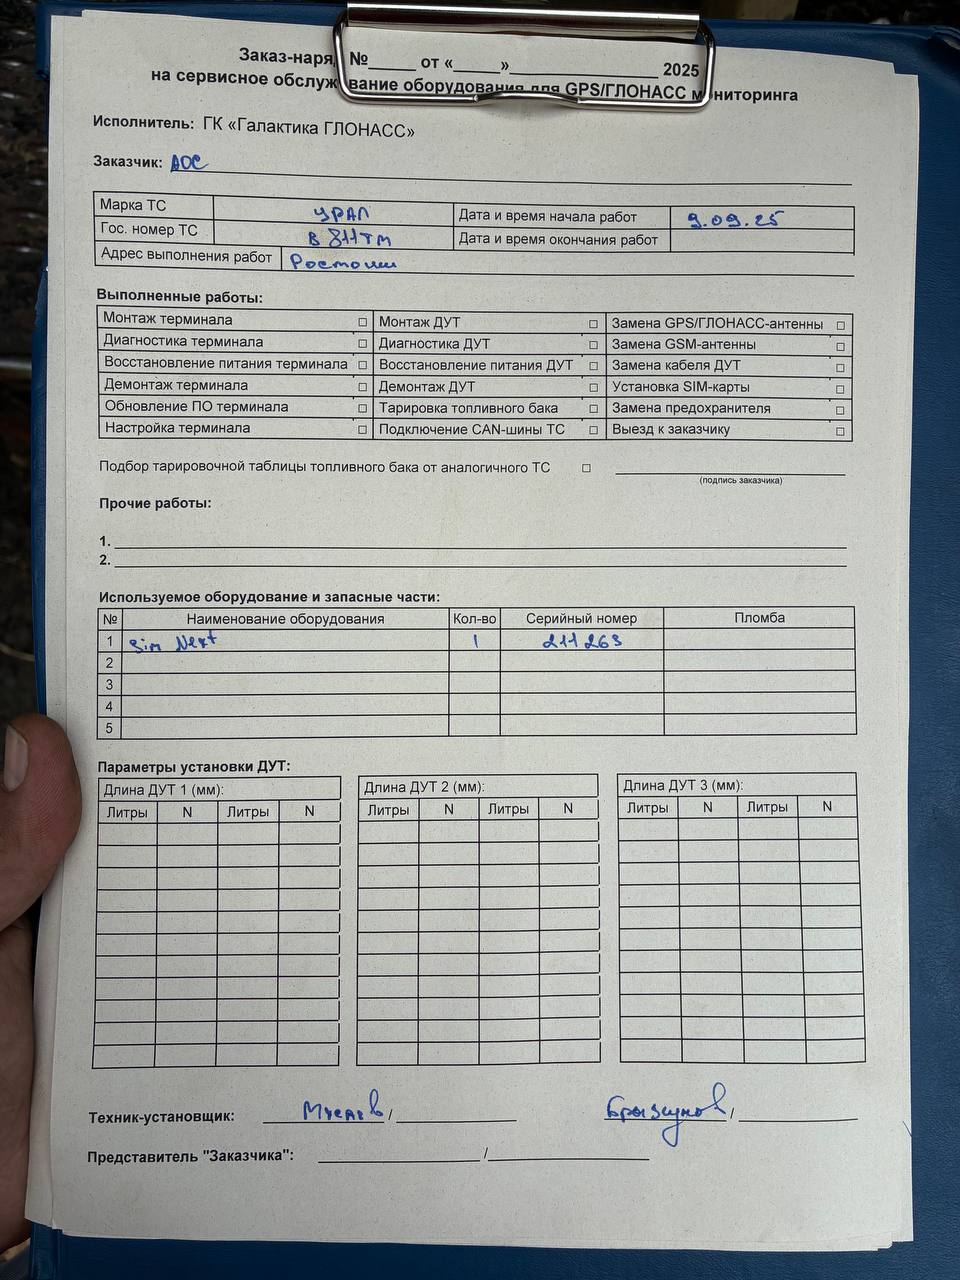 Заказ-наряд №_____ от «_____»________________ 2025
на сервисное обслуживание оборудования для GPS/ГЛОНАСС мониторинга
Исполнитель: ГК «Галактика ГЛОНАСС»
Заказчик: АОС
Марка ТС УРАЛ Дата и время начала работ 9.09.25
Гос. номер ТС В 811 ТМ Дата и время окончания работ
Адрес выполнения работ Ростоши
Выполненные работы:
Монтаж терминала □ Монтаж ДУТ □ Замена GPS/ГЛОНАСС-антенны □
Диагностика терминала □ Диагностика ДУТ □ Замена GSM-антенны □
Восстановление питания терминала □ Восстановление питания ДУТ □ Замена кабеля ДУТ □
Демонтаж терминала □ Демонтаж ДУТ □ Установка SIM-карты □
Обновление ПО терминала □ Тарировка топливного бака □ Замена предохранителя □
Настройка терминала □ Подключение CAN-шины ТС □ Выезд к заказчику □
Подбор тарировочной таблицы топливного бака от аналогичного ТС □
(подпись заказчика)
Прочие работы:
1.
2.
Используемое оборудование и запасные части:
№ Наименование оборудования Кол-во Серийный номер Пломба
1 Sim Next 1 211263
2
3
4
5
Параметры установки ДУТ:
Длина ДУТ 1 (мм): Длина ДУТ 2 (мм): Длина ДУТ 3 (мм):
Литры N Литры N Литры N Литры N Литры N Литры N
Техник-установщик: / Брызгунов /
Представитель "Заказчика": /